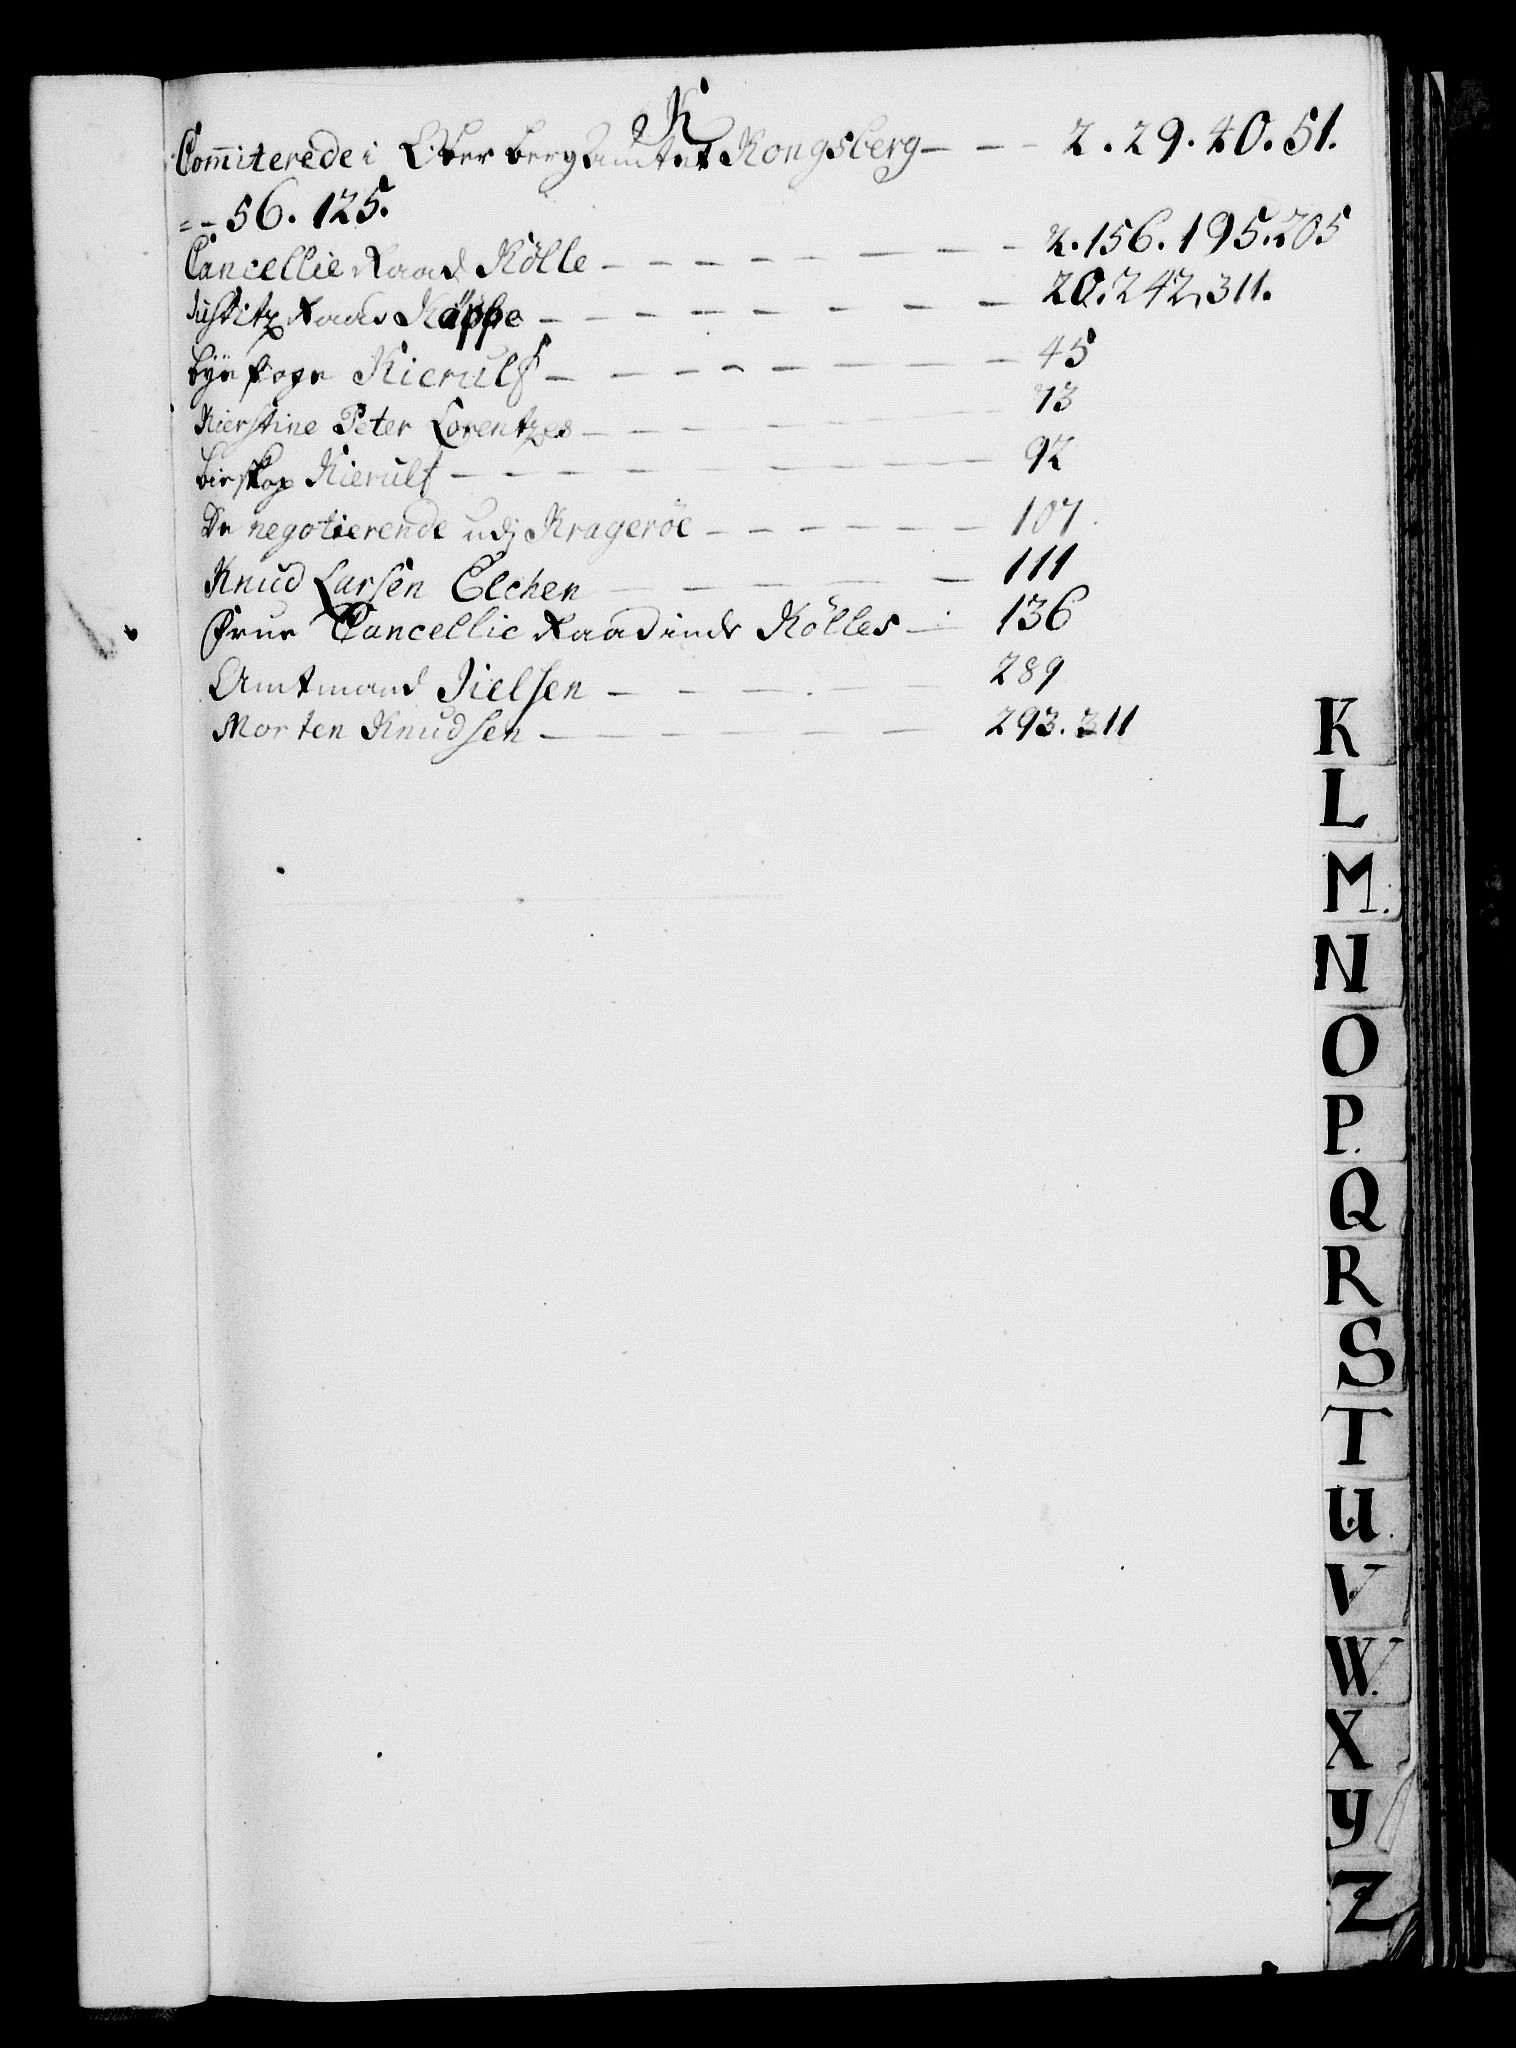 K
Com̄iterede i Ober berg Amtet Kongsberg — — — 2. 29. 40. 51.
= – 56. 125.
Cancellie Raad Kölle — — — — — — — — 2. 156. 195. 205
Justitz Raad Köppe — — — — — — — — 20. 242, 311.
Bÿe foge Kierulf — — — — — — — — 45
Kierstine Peter Lorentzes — — — — — — 73
Kierulf — — — — — — — — — 92
De negotierende udj Krageröe — — — — — — 107.
Knud Larsen Elchen — — — — — 111
Frue Cancellie Raadinde Kölles — — 136
Amtmand Nielsen — — — — — 289
Morten Knudsen — — — — — — 293. 311
K
L
M.
N
O
P.
Q
R
S
T
U.
V
W.
X
Y
Z